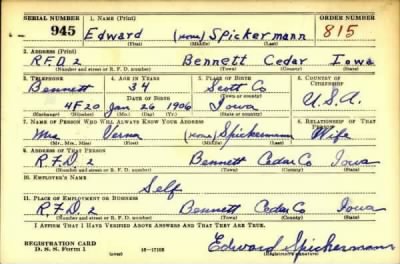 SERIAL NUMBER 1. NAME (Print) ORDER NUMBER
945 Edward (none) Spickermann 815
(First) (Middle) (Last)
2. ADDRESS (Print)
R.F.D 2 Bennett Cedar Iowa
(Number and street or R. F. D. number) (Town) (County) (State)
3. TELEPHONE 4. AGE IN YEARS 5. PLACE OF BIRTH 6. COUNTRY OF CITIZENSHIP
Bennett 34 Scott Co
DATE OF BIRTH (Town or county)
4F20 Jan 26 1906 Iowa U.S.A.
(Exchange) (Number) (Mo.) (Day) (Yr.) (State or country)
7. NAME OF PERSON WHO WILL ALWAYS KNOW YOUR ADDRESS 8. RELATIONSHIP OF THAT PERSON
Mrs Verna (none) Spickermann Wife
(Mr., Mrs., Miss) (First) (Middle) (Last)
9. ADDRESS OF THAT PERSON
R.F.D. 2 Bennett Cedar Co Iowa
(Number and street or R. F. D. number) (Town) (County) (State)
10. EMPLOYER'S NAME
Self
11. PLACE OF EMPLOYMENT OR BUSINESS
R.F.D. 2 Bennett Cedar Co Iowa
(Number and street or R. F. D. number) (Town) (County) (State)
I AFFIRM THAT I HAVE VERIFIED ABOVE ANSWERS AND THAT THEY ARE TRUE.
REGISTRATION CARD
D. S. S. Form 1 (over) 16-17105 Edward Spickermann
(Registrant's signature)